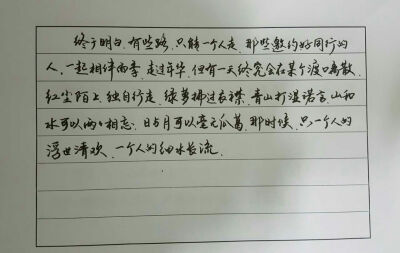 终于明白,有些路,只能一个人走,那些邀约好同行的
人,一起相伴雨季,走过年华,但有一天终究会在某个渡口离散,
红尘陌上,独自行走,绿萝拂过衣襟,青山打湿诺言,山和
水可以两两相忘,日与月可以毫无瓜葛,那时候,只一个人的
浮世清欢,一个人的细水长流.